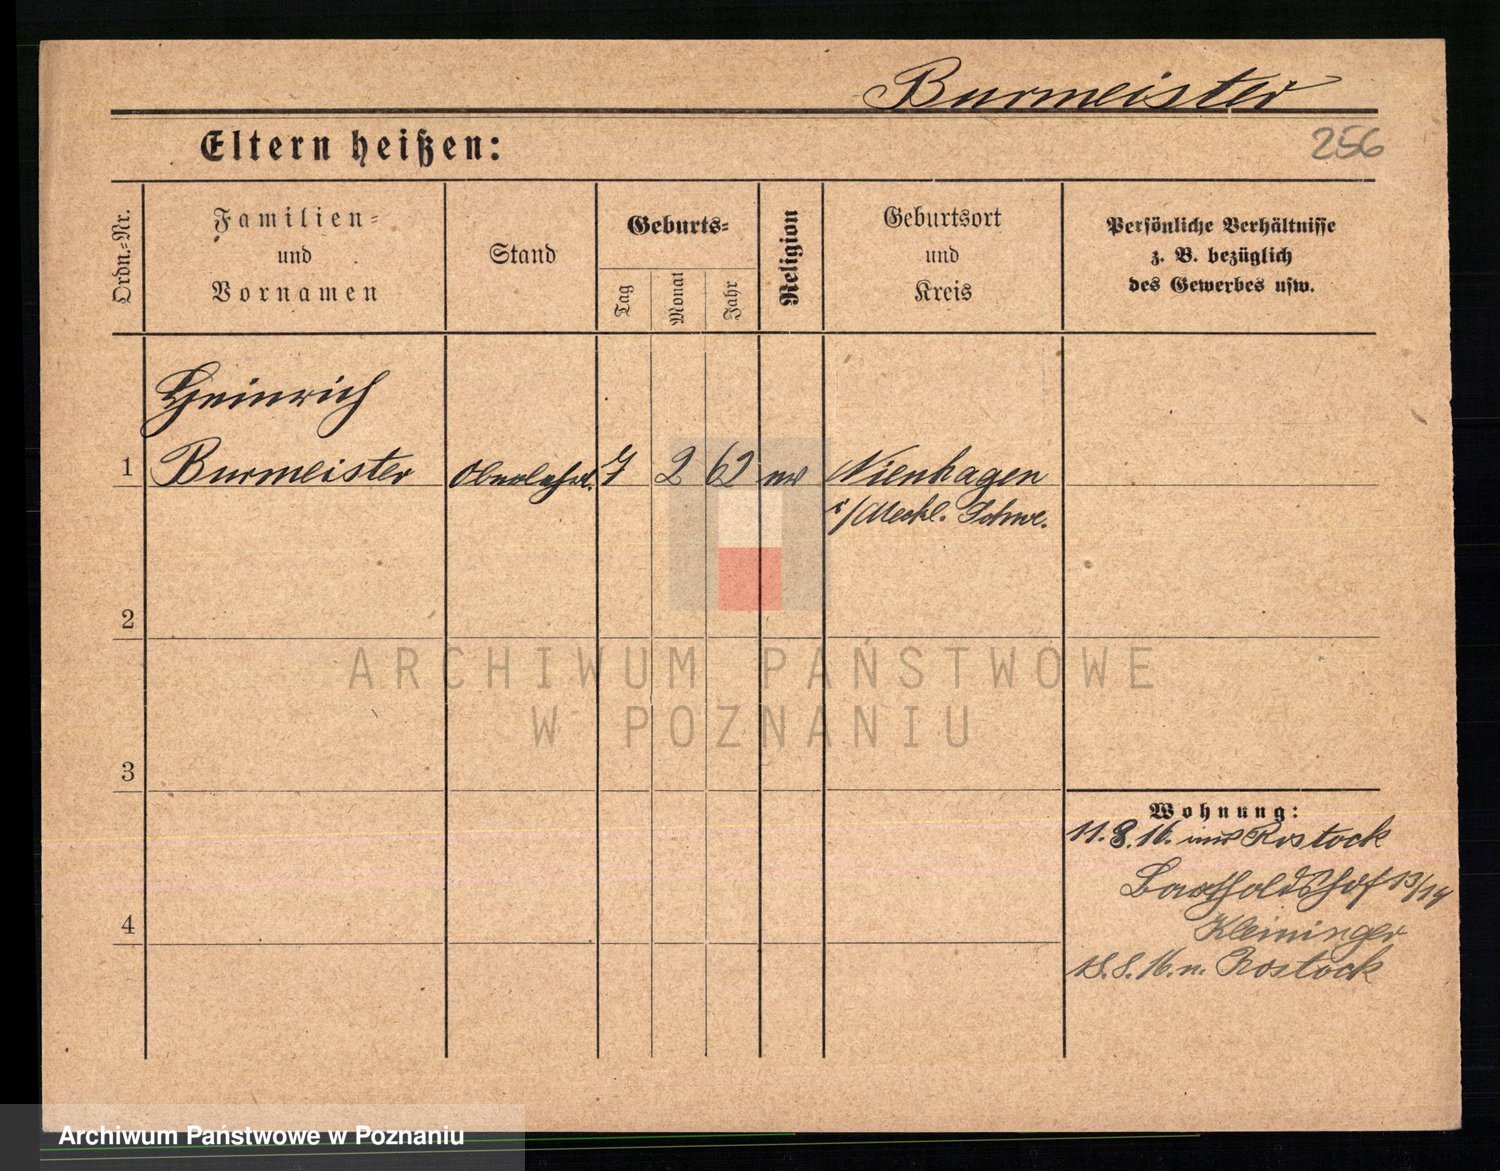 Burmeister
256
Eltern heißen:
Ordn.-Nr.
Familien-
und
Vornamen
Stand
Geburts-
Tag
Monat
Jahr
Religion
Geburtsort
und
Kreis
Persönliche Verhältnisse
z. B. bezüglich
des Gewerbes usw.
Heinrich
1 Burmeister Oberlehr. 7 2 62 ev Nienhagen
i/Meckl. Schw.
2
3
4
Wohnung:
11.8.16. aus Rostock
13/14
Kleininger
18.8.16. n. Rostock
ARCHIWUM PAŃSTWOWE
W POZNANIU
Archiwum Państwowe w Poznaniu